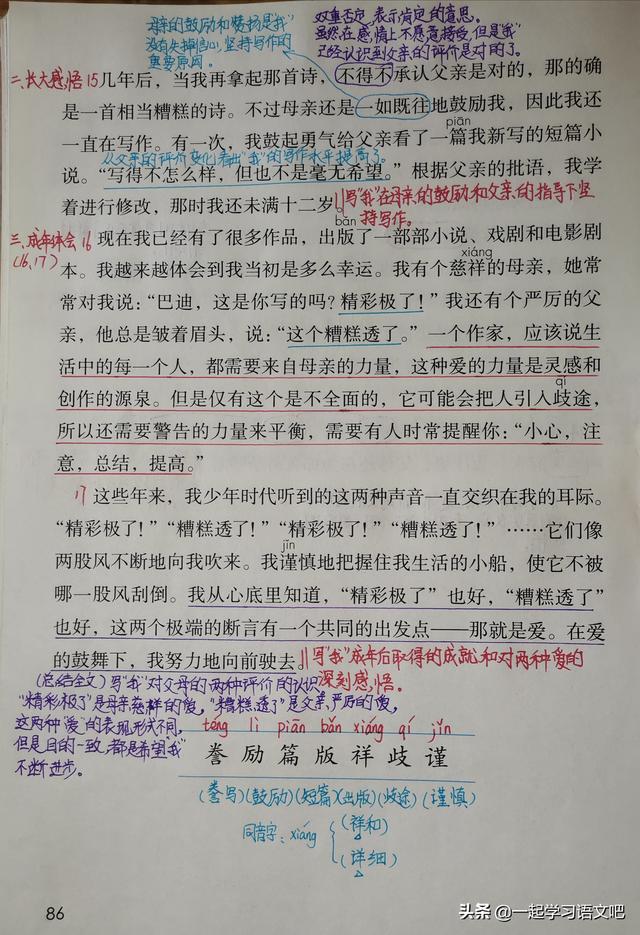 母亲的鼓励和赞扬是“我”
没有失掉信心,坚持写作的
重要原因。
双重否定,表示肯定的意思。
虽然在感情上不愿意接受,但是“我”
已经认识到父亲的评价是对的了。
二、长大感悟 15 几年后,当我再拿起那首诗,不得不承认父亲是对的,那的确
是一首相当糟糕的诗。不过母亲还是一如既往地鼓励我,因此我还
piān
一直在写作。有一次,我鼓起勇气给父亲看了一篇我新写的短篇小
从父亲的评价变化看出“我”的写作水平提高了。
说。“写得不怎么样,但也不是毫无希望。”根据父亲的批语,我学
着进行修改,那时我还未满十二岁。‖写“我”在母亲的鼓励和父亲的指导下坚
持写作。
bǎn
三、成年体会 16 现在我已经有了很多作品,出版了一部部小说、戏剧和电影剧
(16、17)
xiáng
本。我越来越体会到我当初是多么幸运。我有个慈祥的母亲,她常
常对我说:“巴迪,这是你写的吗?精彩极了!”我还有个严厉的父
亲,他总是皱着眉头,说:“这个糟糕透了。”一个作家,应该说生
活中的每一个人,都需要来自母亲的力量,这种爱的力量是灵感和
qí
创作的源泉。但是仅有这个是不全面的,它可能会把人引入歧途,
所以还需要警告的力量来平衡,需要有人时常提醒你:“小心,注
意,总结,提高。”
17 这些年来,我少年时代听到的这两种声音一直交织在我的耳际。
“精彩极了!”“糟糕透了!”“精彩极了!”“糟糕透了!”……它们像
jǐn
两股风不断地向我吹来。我谨慎地把握住我生活的小船,使它不被
哪一股风刮倒。我从心底里知道,“精彩极了”也好,“糟糕透了”
也好,这两个极端的断言有一个共同的出发点——那就是爱。在爱
的鼓舞下,我努力地向前驶去。‖写“我”成年后取得的成就和对两种爱的
深刻感悟。
(总结全文)写“我”对父母的两种评价的认识
“精彩极了”是母亲慈祥的爱,“糟糕透了”是父亲严厉的爱,
这两种“爱”的表现形式不同,
但是目的一致,都是希望“我”
不断进步。
téng lì piān bǎn xiáng qí jǐn
誊 励 篇 版 祥 歧 谨
(誊写)(鼓励)(短篇)(出版)(歧途)(谨慎)
同音字:xiáng
(祥和)
(详细)
86
头条 @一起学习语文吧